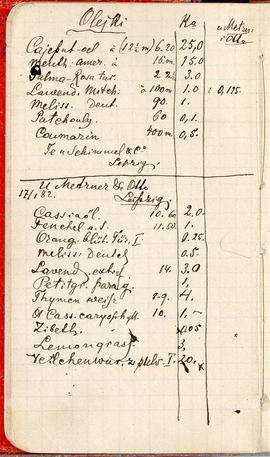 Olejki Ko u Metzn. i Otto
Cajeput-oel à (12½ m) 6.20 25,0
Menth. amer. à 16 m 15,0
Palma-Rosa tus. 2 2½ 3.0
Lavend. Mitch: à 100m 1.0 : 0,125.
Meliss. Deut. 90. 1.
Patchouly. 60 0,1.
Coumarin 400m 0,5.
Schimmel & Co
Leipzig.
u Metzner & Otto
17/1 82. Leipzig.
Cassiaöl. 10.60 2.0
Fenchel a.S. 11.50 1.
Orang. blüt. I. 0.25.
Meliss. Deutsch 0.5.
Lavend. extraf 14. 3.0
Petitgr. parag. 1,
Thymen weiss 8-9. 4,
Ol Cass. caryophyll. 10. 1,—
Zibeth.
Lemongras. 3,
Veilchenwurz. pulv. I. 20.